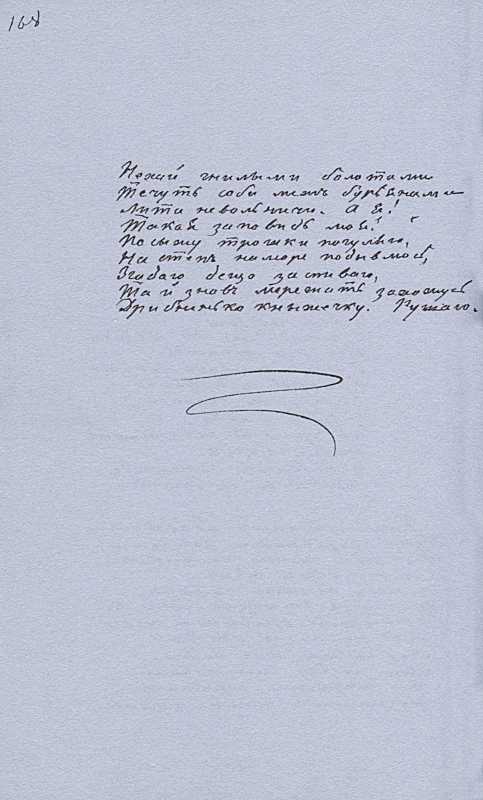 168
Нехай гнилыми болотами
Течуть соби межъ бурьянами
Лита невольничи. А я!
Такая заповидь моя!
Посыжу трошки погуляю,
На степъ на море подывлюсь,
Згадаю дещо заспиваю,
Та й зновъ мережать заходжусь
Дрибненько кныжечку. Рушаю.